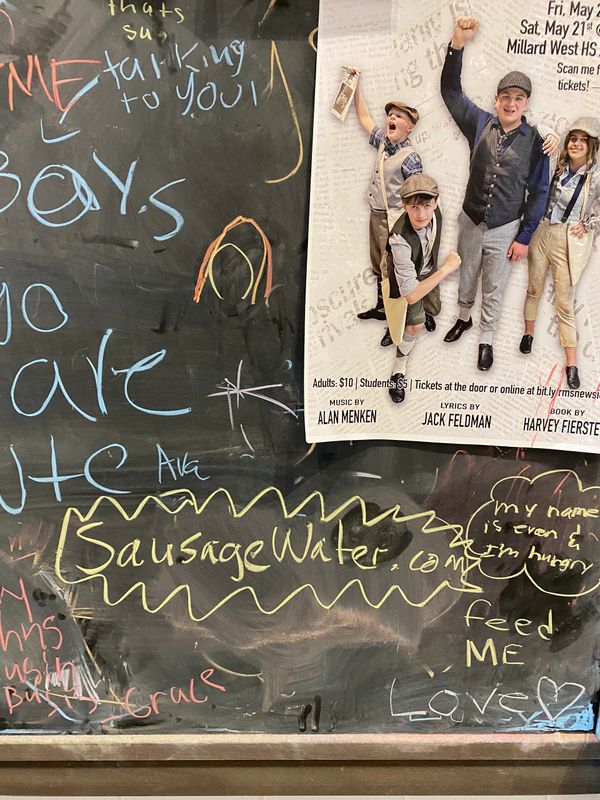 thats
so
ME
talking
to YOU!
BOYS
go
are
Ava
SausageWater.com
my name
is evan &
I'm hungry
feed
ME
Grace
Love
Fri, May 2
Sat, May 21st @
Millard West HS
Scan me f
tickets!
Adults: $10 | Students: $5 | Tickets at the door or online at bit.ly/rmsnewsi
MUSIC BY
ALAN MENKEN
LYRICS BY
JACK FELDMAN
BOOK BY
HARVEY FIERSTE